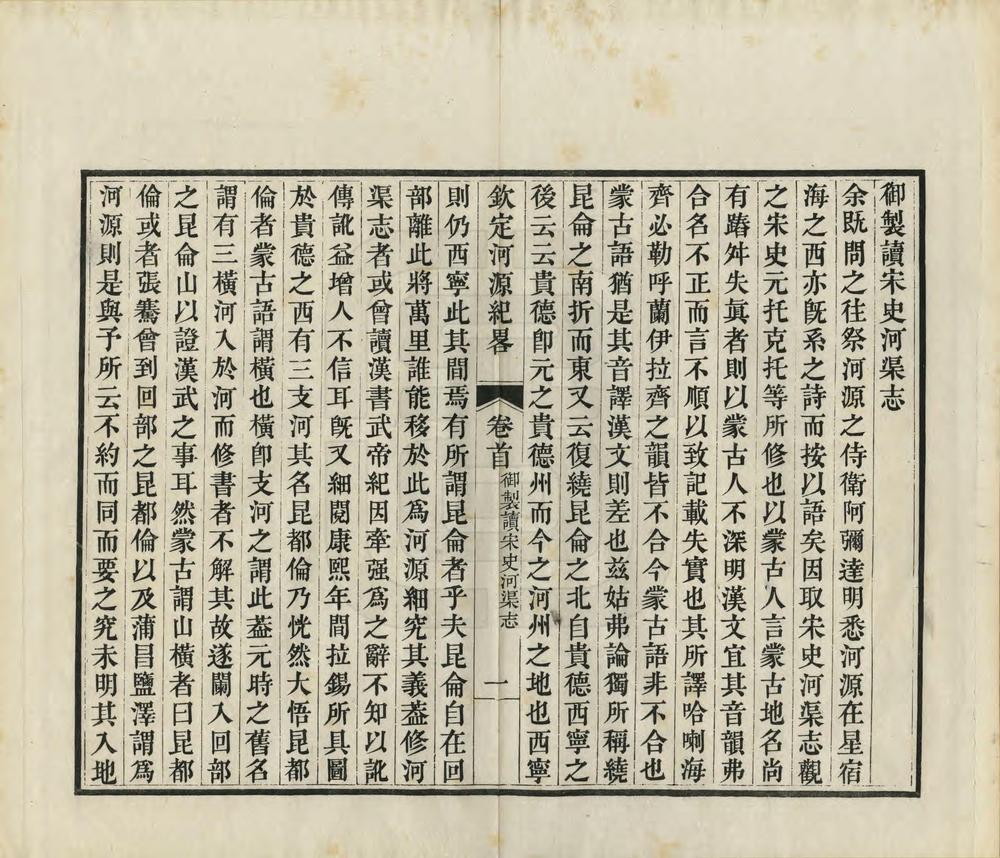 御製讀宋史河渠志
余既問之往祭河源之侍衛阿彌達明悉河源在星宿
海之西亦既系之詩而按以語矣因取宋史河渠志觀
之宋史元托克托等所修也以蒙古人言蒙古地名尚
有踳舛失眞者則以蒙古人不深明漢文宜其音韻弗
合名不正而言不順以致記載失實也其所譯哈喇海
齊必勒呼蘭伊拉齊之韻皆不合今蒙古語非不合也
蒙古語猶是其音譯漢文則差也茲姑弗論獨所稱繞
昆侖之南折而東又云復繞昆侖之北自貴德西寧之
後云云貴德卽元之貴德州而今之河州之地也西寧
欽定河源紀畧
卷首
御製讀宋史河渠志
一
則仍西寧此其間焉有所謂昆侖者乎夫昆侖自在回
部離此將萬里誰能移於此爲河源細究其義葢修河
渠志者或曾讀漢書武帝紀因牽强爲之辭不知以訛
傳訛益增人不信耳既又細閱康熙年間拉錫所具圖
於貴德之西有三支河其名昆都倫乃恍然大悟昆都
倫者蒙古語謂橫也橫卽支河之謂此葢元時之舊名
謂有三橫河入於河而修書者不解其故遂闌入回部
之昆侖山以證漢武之事耳然蒙古謂山橫者曰昆都
倫或者張騫曾到回部之昆都倫以及蒲昌鹽澤謂爲
河源則是與予所云不約而同而要之究未明其入地